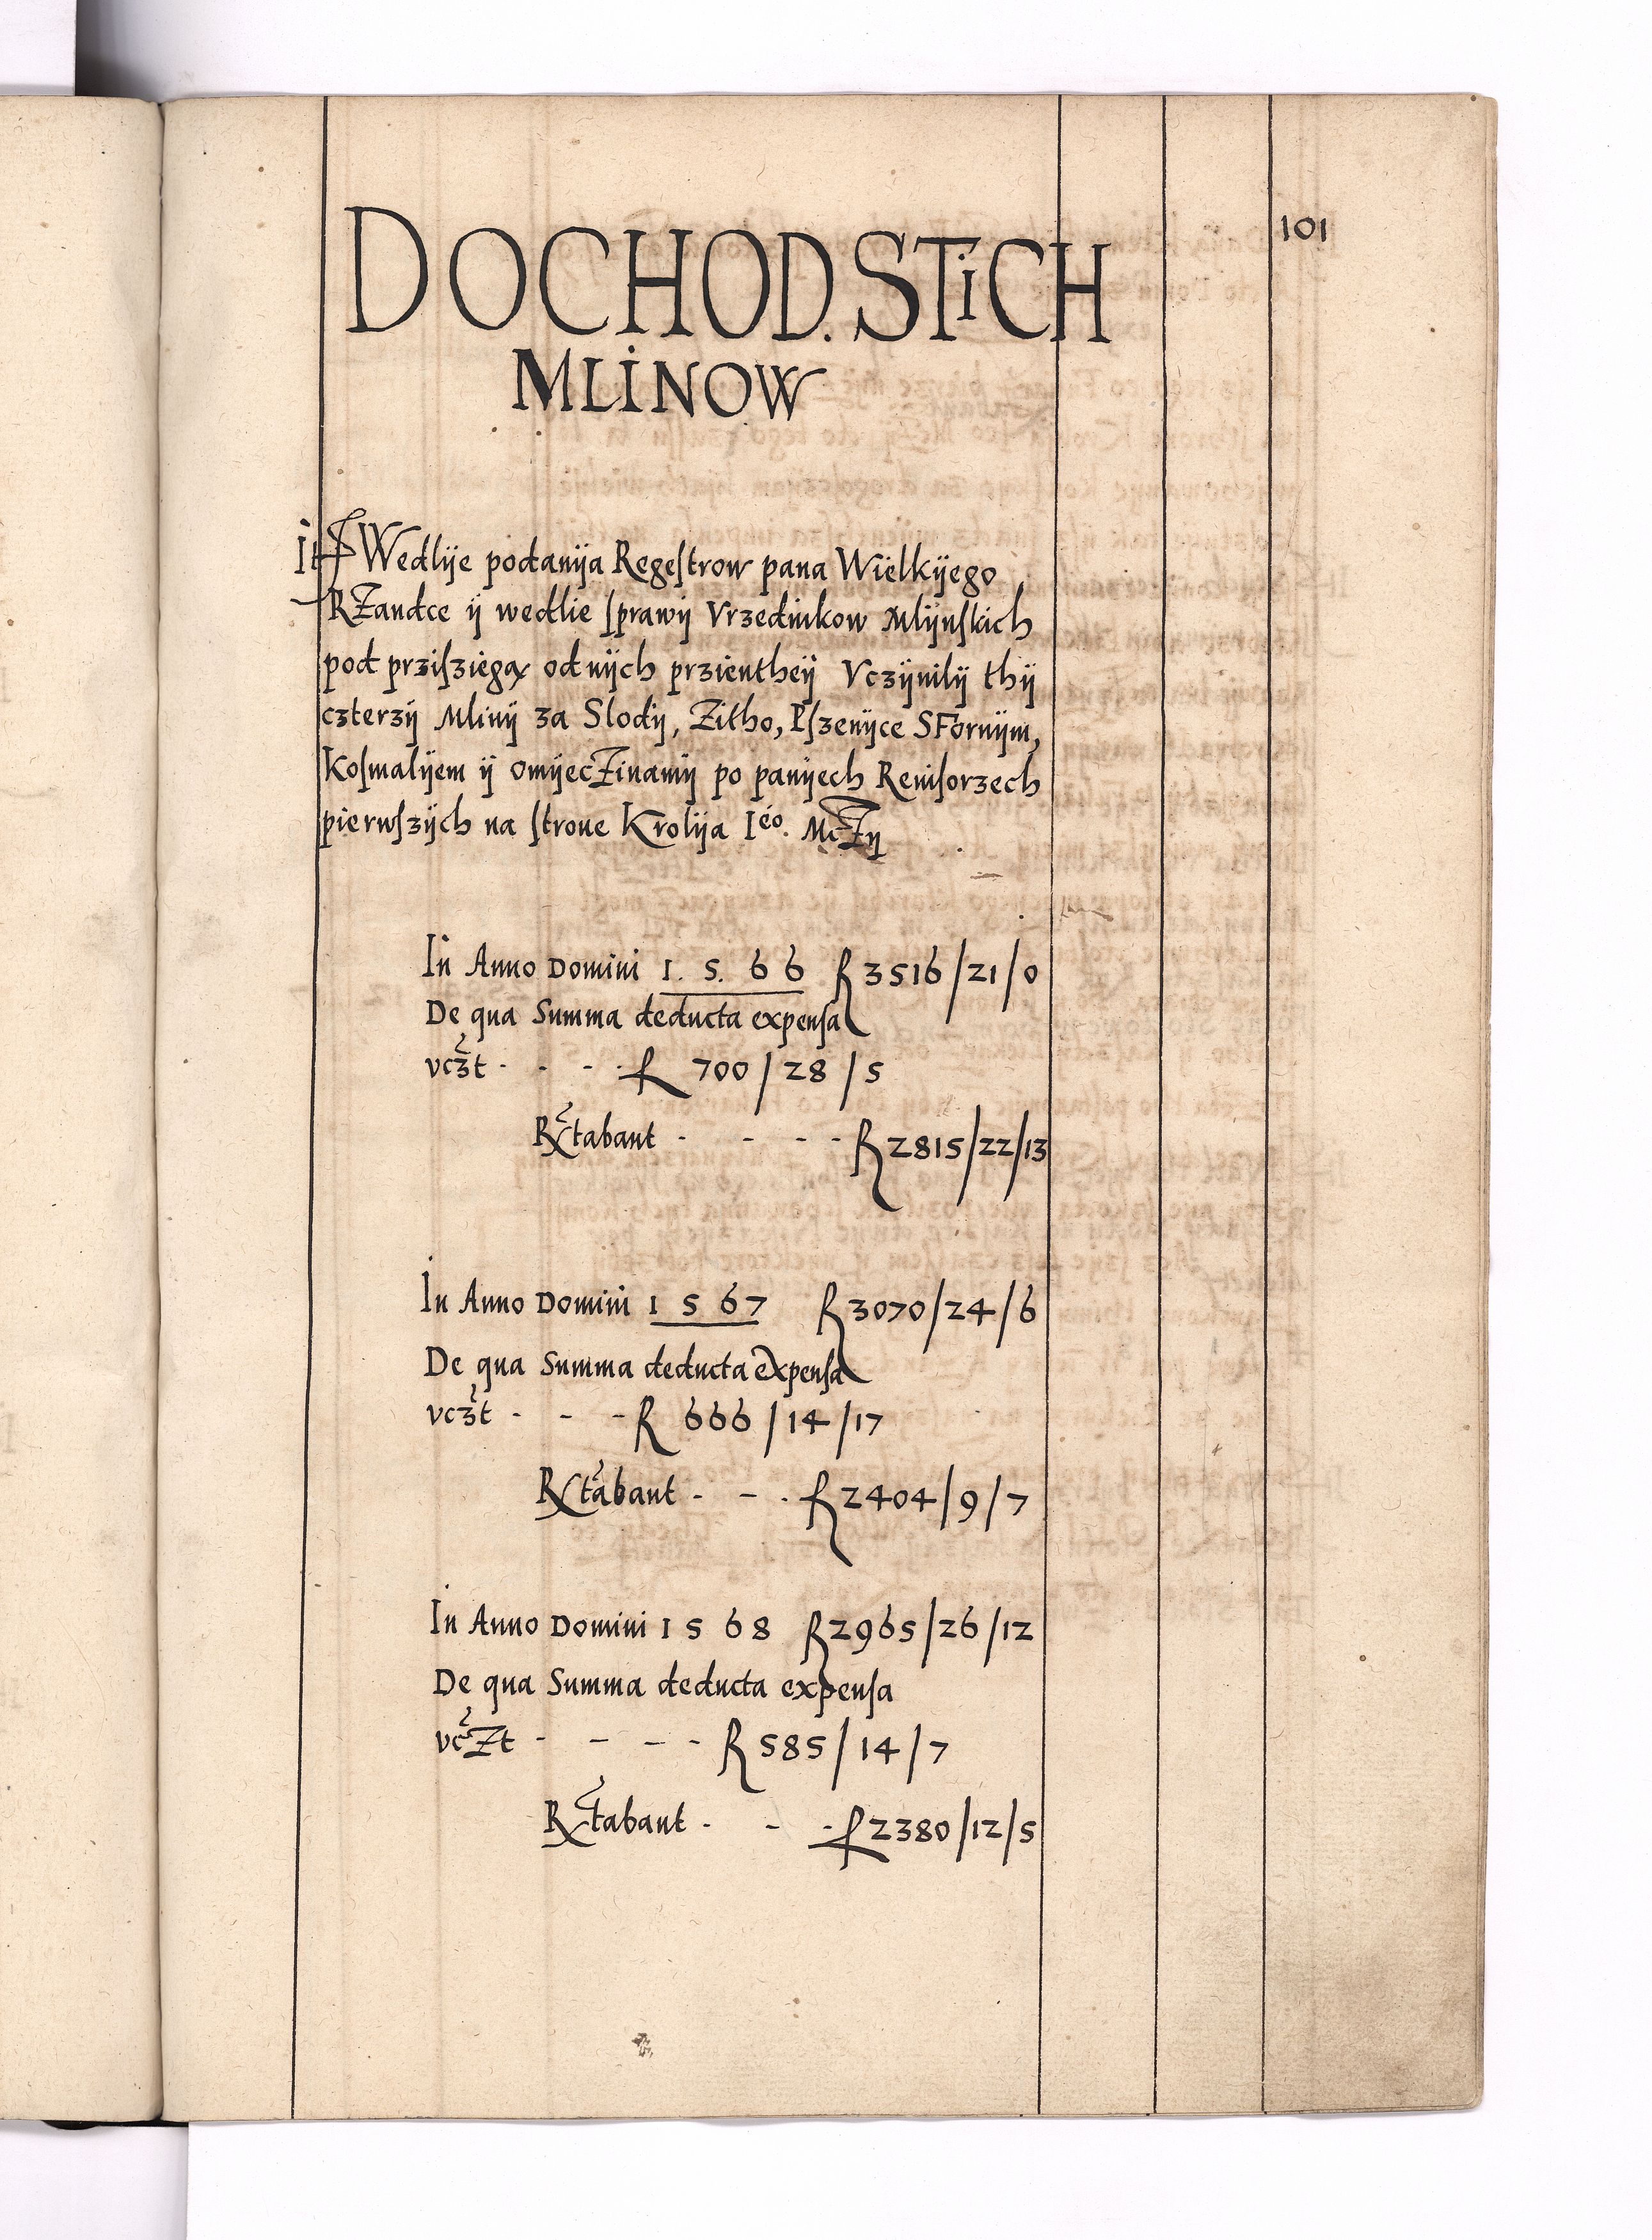 101
DOCHOD. STiCH
MLiNOW
It Wedlije podanija Regestrow pana Wielkijego
RZandce ij wedlie sprawij Vrzednikow Mlijnskich
pod przisziegą od nijch przientheij Vczijnilij thij
czterzij Mlinij za Slodij, Zitho, Pszenijce SFornijm,
Kosmalijem ij omijecZinamij po panijech Reuisorzech
pierwszijch na strone Krolija Ieo. McZij
In Anno Domini 1. 5. 6 6 R 3516/21/0
De qua Summa deducta expensa
vczt - - - R 700/28/5
Rtabant - - - - R 2815/22/13
In Anno Domini 1 5 67 R 3070/24/6
De qua Summa deducta expensa
vczt - - - R 666/14/17
Rtabant - - . R 2404/9/7
In Anno Domini 1 5 6 8 R 2965/26/12
De qua Summa deducta expensa
vcZt - - - - R 585/14/7
Rtabant . - . R 2380/12/5